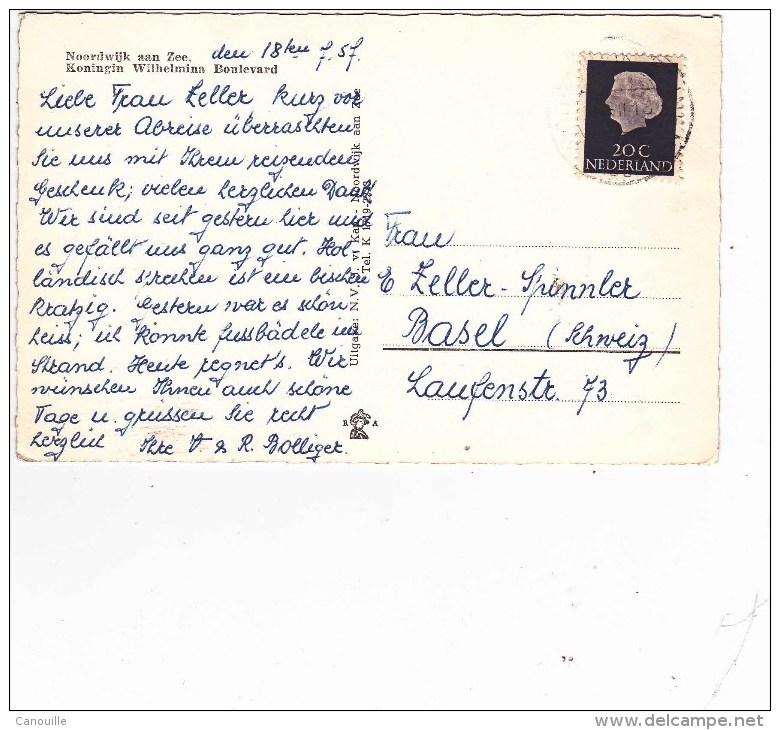 Noordwijk aan Zee,
Koningin Wilhelmina Boulevard
den 18ten 7. 57.
Liebe Frau Zeller kurz vor
unserer Abreise überraschten
Sie uns mit Ihrem reizenden
Geschenk; vielen herzlichen Dank
Wir sind seit gestern hier und
es gefällt uns ganz gut. Hol-
ländisch sprechen ist ein bischen
kratzig. Gestern war es schön
heiss; ich konnte fussbädele im
Strand. Heute regnet's. Wir
wünschen Ihnen auch schöne
Tage u. grüssen Sie recht
herzlich Ihre V & R. Bolliger.
Uitgave: N.V. v/ Kan - Noordwijk aan Zee
Tel. K 1719-2778
R A
20 C
NEDERLAND
Frau
E Zeller-Spinnler
Basel (Schweiz)
Laufenstr. 73
Canouille
www.delcampe.net